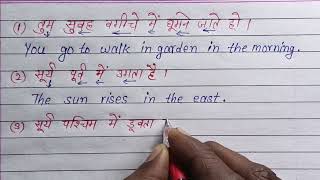 (1) तुम सुबह बगीचे में घूमने जाते हो ।
You go to walk in garden in the morning.
(2) सूर्य पूर्व में उगता है ।
The sun rises in the east.
(3) सूर्य पश्चिम में डूबता